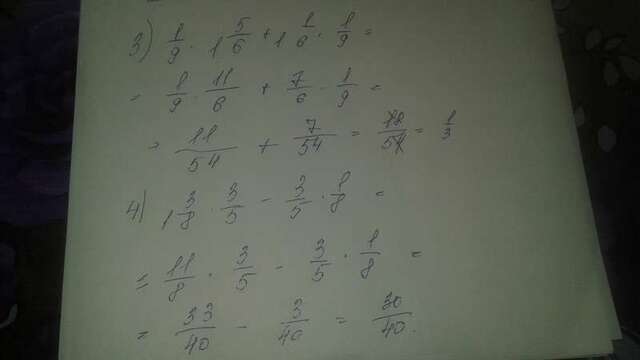 3) 1/9 · 1 5/6 + 1 1/6 · 1/9 =
= 1/9 · 11/6 + 7/6 · 1/9 =
= 11/54 + 7/54 = 18/54 = 1/3
4) 1 3/8 · 3/5 - 3/5 · 1/8 =
= 11/8 · 3/5 - 3/5 · 1/8 =
= 33/40 - 3/40 = 30/40.